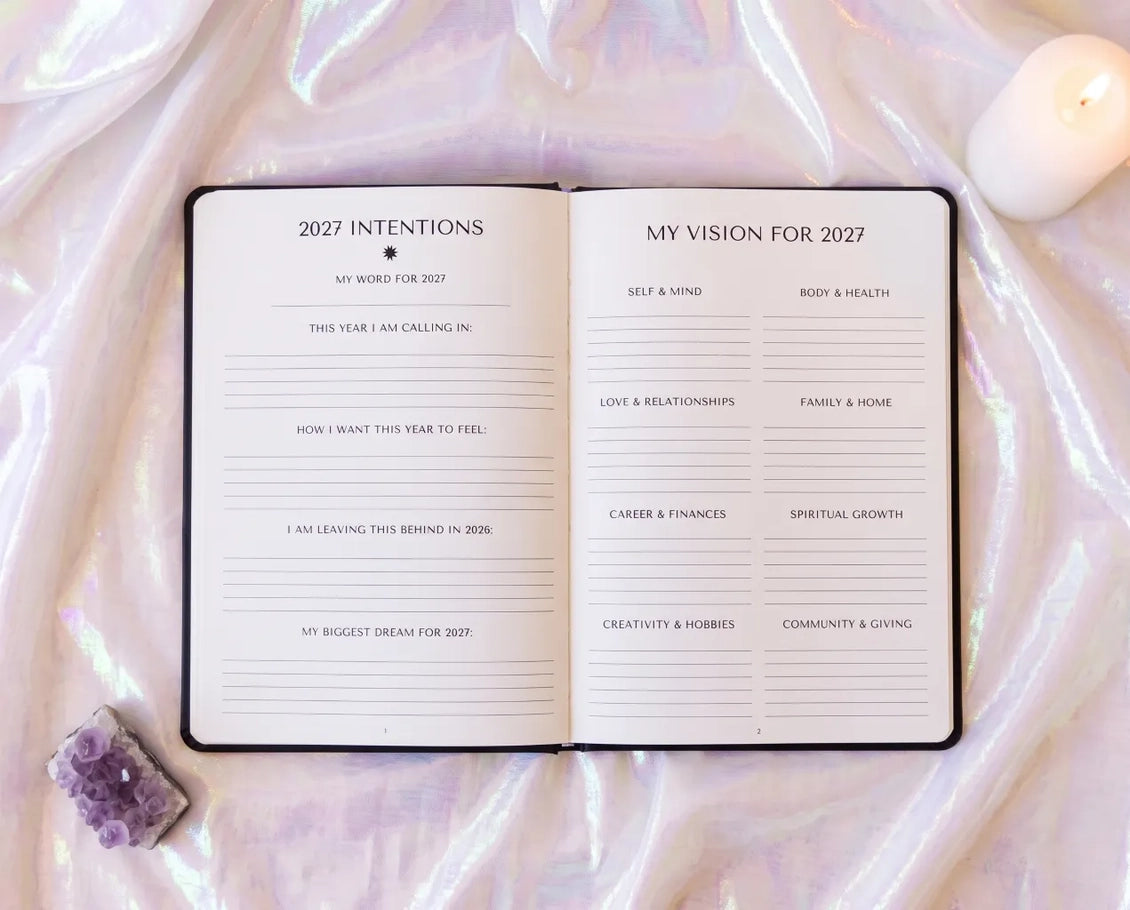 2027 INTENTIONS
MY WORD FOR 2027
THIS YEAR I AM CALLING IN:
HOW I WANT THIS YEAR TO FEEL:
I AM LEAVING THIS BEHIND IN 2026:
MY BIGGEST DREAM FOR 2027:
1
MY VISION FOR 2027
SELF & MIND
BODY & HEALTH
LOVE & RELATIONSHIPS
FAMILY & HOME
CAREER & FINANCES
SPIRITUAL GROWTH
CREATIVITY & HOBBIES
COMMUNITY & GIVING
2